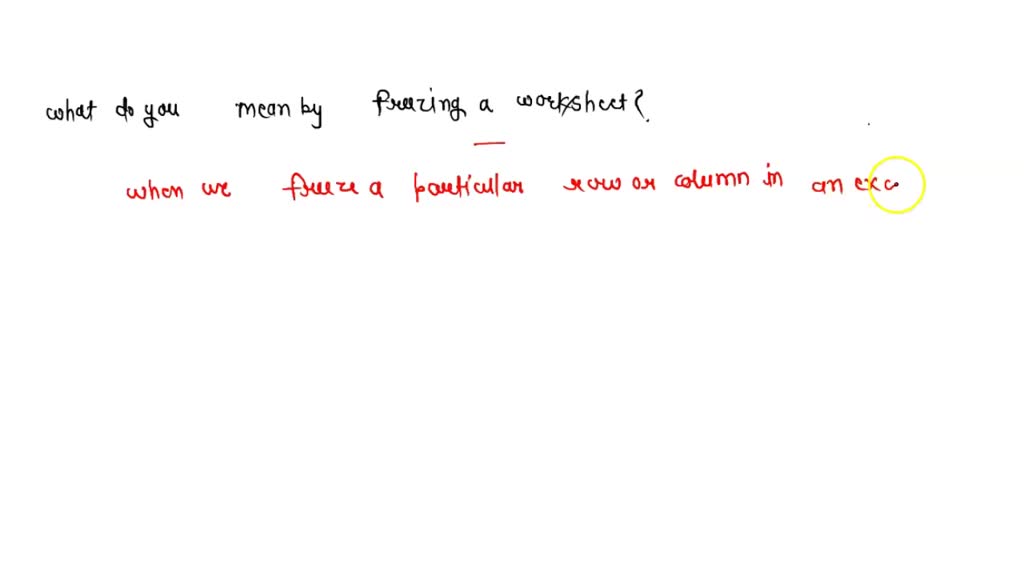 what do you mean by freezing a worksheet?
when we freeze a particular row or column in an exc